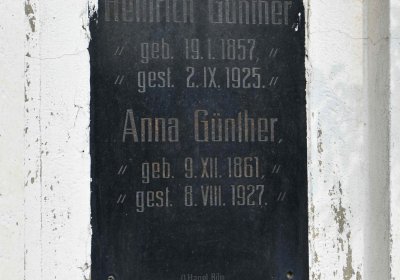 Heinrich Günther,
„ geb. 19. I. 1857, „
„ gest. 2. IX. 1925. „
Anna Günther,
„ geb. 9. XII. 1861, „
„ gest. 8. VIII. 1927. „